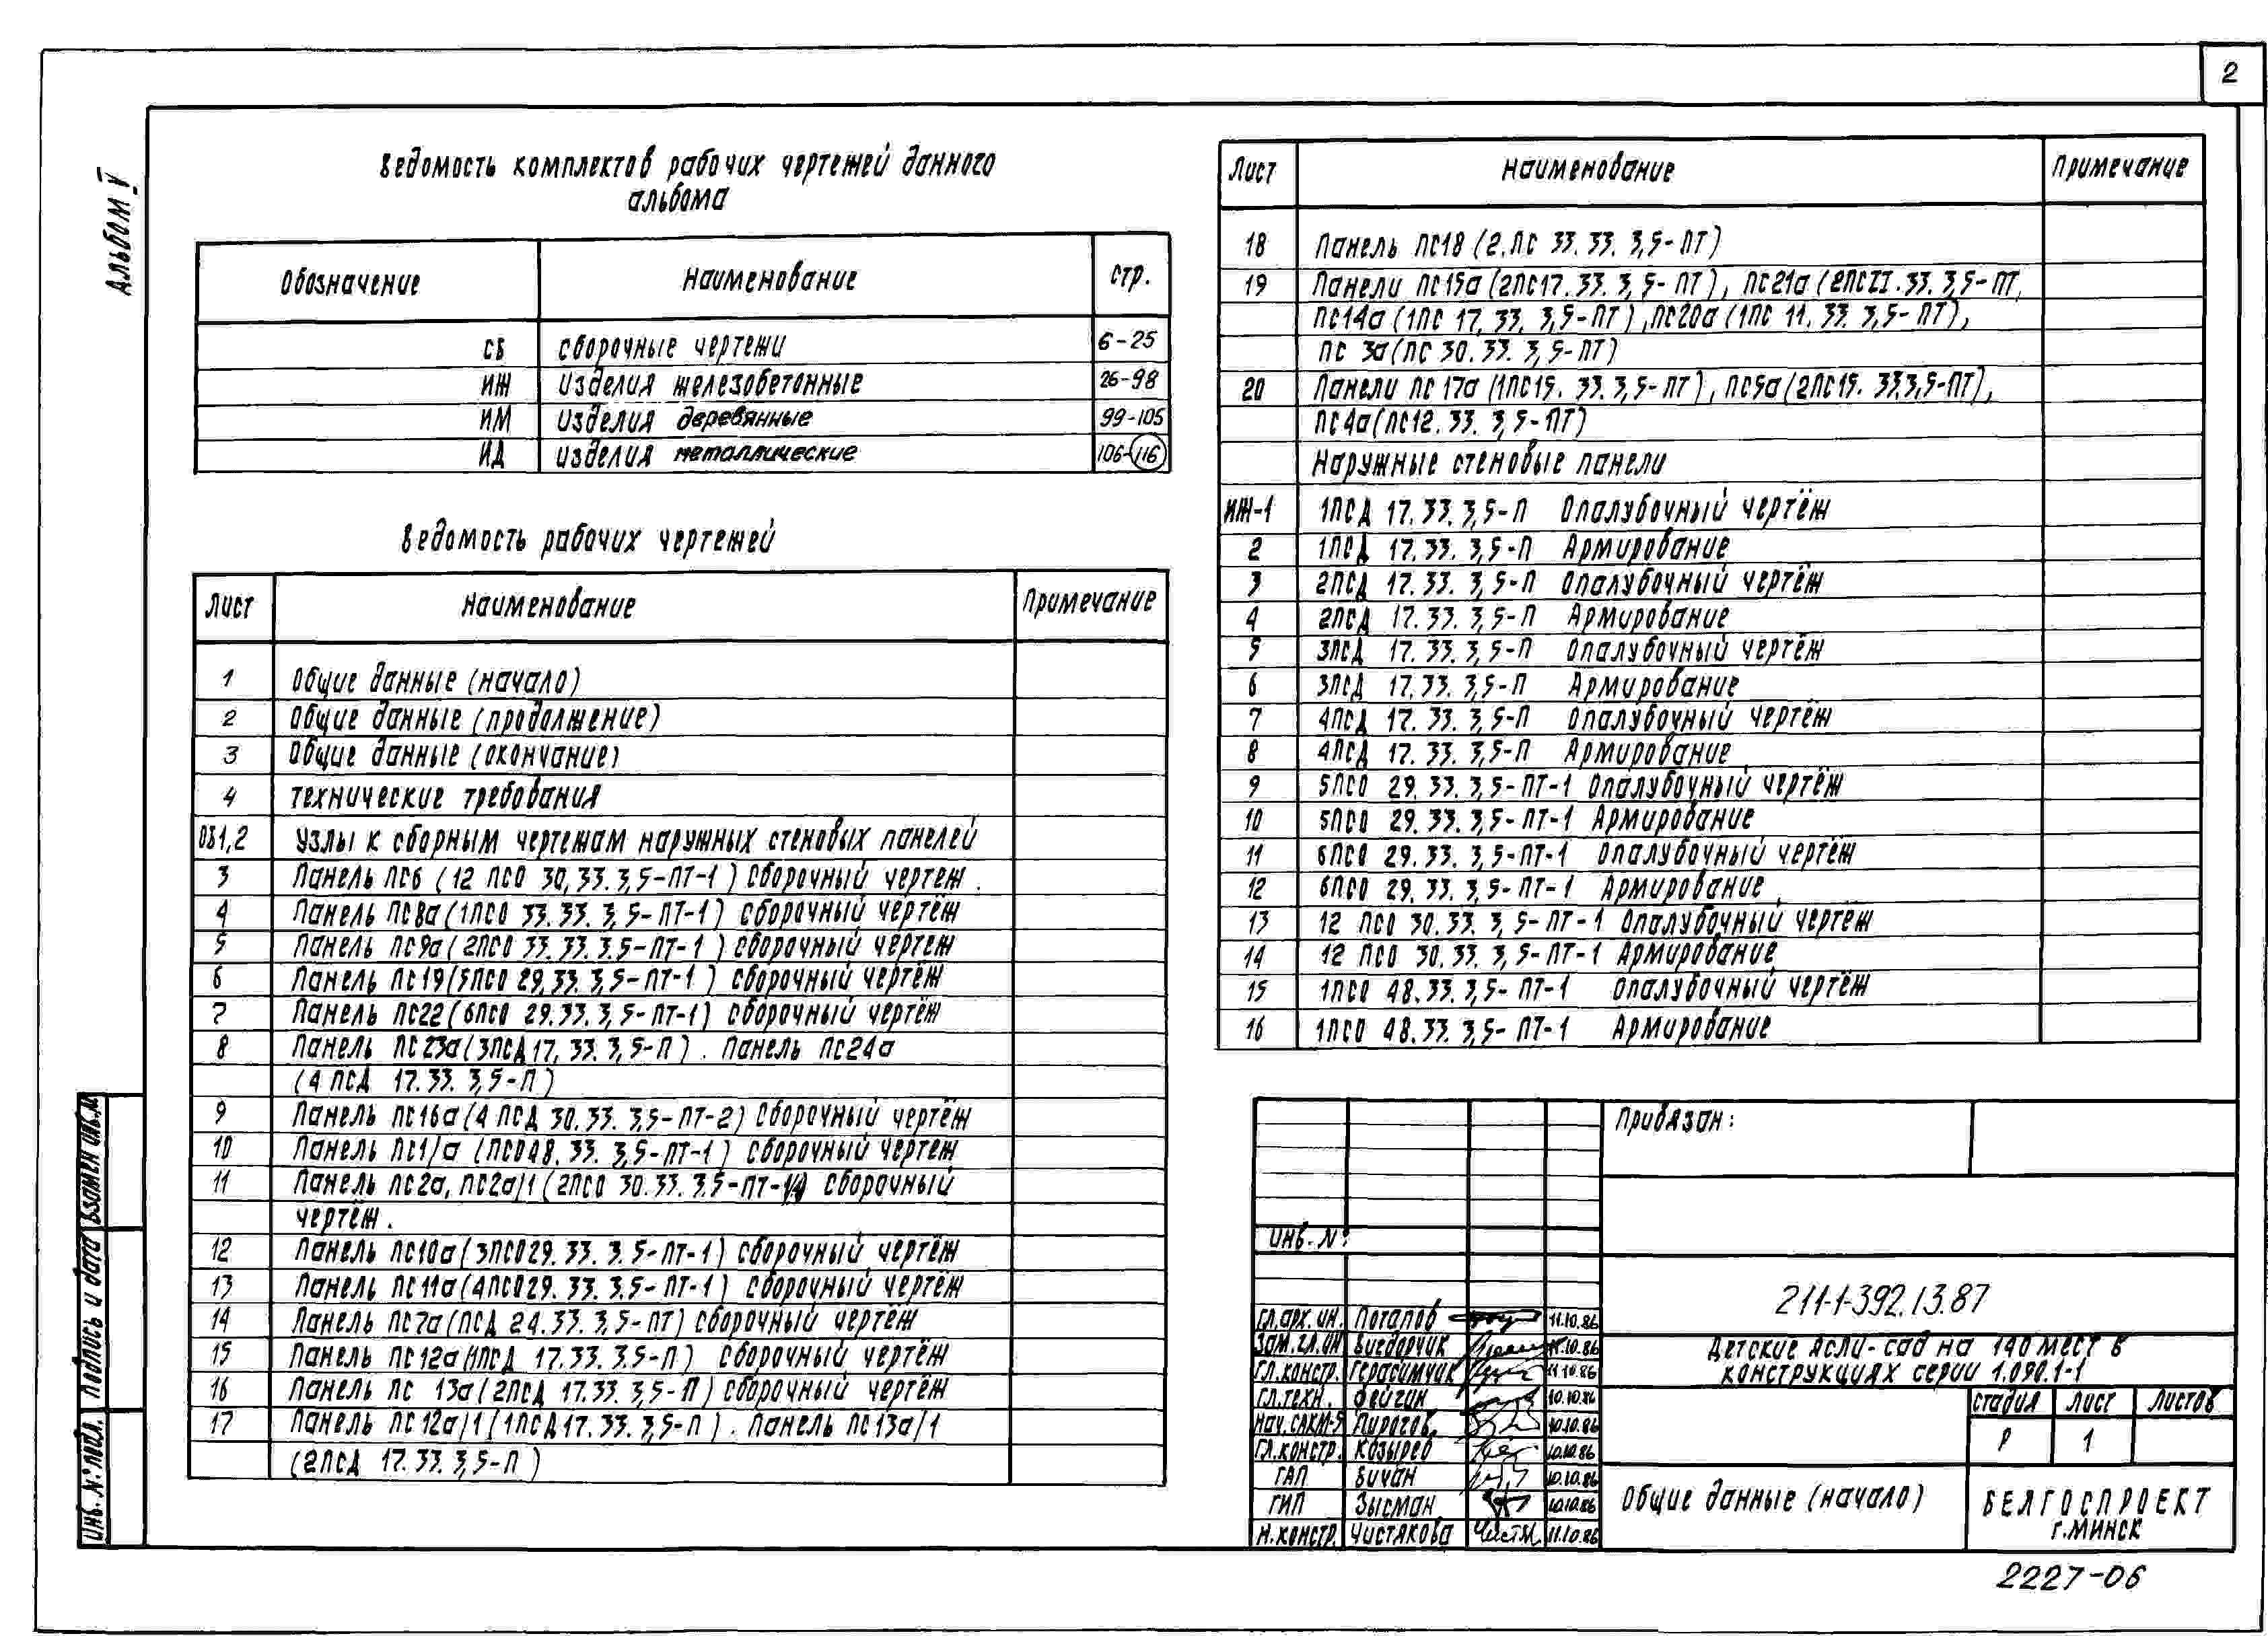 2
Альбом V
Ведомость комплектов рабочих чертежей данного
альбома
Обозначение Наименование стр.
СБ Сборочные чертежи 6-25
ИЖ Изделия железобетонные 26-98
ИМ Изделия деревянные 99-105
ИД Изделия металлические 106-116
Ведомость рабочих чертежей
Лист Наименование Примечание
1 Общие данные (начало)
2 Общие данные (продолжение)
3 Общие данные (окончание)
4 Технические требования
Узлы к сборным чертежам наружных стеновых панелей
3 Панель ПС6 (12 ПСО 30,33.3,5-ПТ-1) Сборочный чертеж.
4 Панель ПС8а (1ПСО 33.33.3,5-ПТ-1) сборочный чертёж
5 Панель ПС9а (2ПСО 33.33.3.5-ПТ-1) сборочный чертеж
6 Панель ПС19 (5ПСО 29,33.3,5-ПТ-1) сборочный чертёж
7 Панель ПС22 (6ПСО 29.33.3,5-ПТ-1) сборочный чертёж
8 Панель ПС23а (3ПСД 17,33.3,5-П). Панель ПС24а
(4 ПСД 17.33.3,5-П)
9 Панель ПС16а (4 ПСД 30.33.3,5-ПТ-2) Сборочный чертёж
10 Панель ПС1/а (ПСО48.33.3,5-ПТ-1) сборочный чертеж
11 Панель ПС2а, ПС2а/1 (2ПСО 30.33.3.5-ПТ- сборочный
чертёж.
12 Панель ПС10а (3ПСО29.33.3.5-ПТ-1) сборочный чертёж
13 Панель ПС11а (4ПСО29.33.3.5-ПТ-1) сборочный чертёж
14 Панель ПС7а (ПСД 24.33.3,5-ПТ) сборочный чертёж
15 Панель ПС12а (1ПСД 17.33.3.5-П) сборочный чертёж
16 Панель ПС 13а (2ПСД 17.33.3,5-П) сборочный чертёж
17 Панель ПС12а/1 (1ПСД17.33.3,5-П). Панель ПС13а/1
(2ПСД 17.33.3,5-П)
Лист Наименование Примечание
18 Панель ПС18 (2.ПС 33.33.3,5-ПТ)
19 Панели ПС15а (2ПС17.33.3,5-ПТ), ПС21а (2ПСII.33.3,5-ПТ,
ПС14а (1ПС 17,33.3,5-ПТ), ПС20а (1ПС 11.33.3,5-ПТ),
ПС 3а (ПС 30.33.3,5-ПТ)
20 Панели ПС 17а (1ПС15.33.3,5-ПТ), ПС5а (2ПС15.33.3,5-ПТ),
ПС4а (ПС12.33.3,5-ПТ)
Наружные стеновые панели
ИЖ-1 1ПСД 17.33.3,5-П Опалубочный чертёж
2 1ПСД 17.33.3,5-П Армирование
3 2ПСД 17.33.3,5-П Опалубочный чертёж
4 2ПСД 17.33.3,5-П Армирование
5 3ПСД 17.33.3,5-П Опалубочный чертёж
6 3ПСД 17.33.3,5-П Армирование
7 4ПСД 17.33.3,5-П Опалубочный чертёж
8 4ПСД 17.33.3,5-П Армирование
9 5ПСО 29.33.3,5-ПТ-1 Опалубочный чертёж
10 5ПСО 29.33.3,5-ПТ-1 Армирование
11 6ПСО 29.33.3,5-ПТ-1 Опалубочный чертёж
12 6ПСО 29.33.3,5-ПТ-1 Армирование
13 12 ПСО 30.33.3,5-ПТ-1 Опалубочный чертёж
14 12 ПСО 30.33.3,5-ПТ-1 Армирование
15 1ПСО 48.33.3,5-ПТ-1 Опалубочный чертёж
16 1ПСО 48.33.3,5-ПТ-1 Армирование
Привязан:
Инв. №:
211-1-392.13.87
Детские ясли-сад на 140 мест в
конструкциях серии 1.090.1-1
Стадия Лист Листов
Р 1
Общие данные (начало)
БЕЛГОСПРОЕКТ
г. МИНСК
Гл.арх.ин. Потапов 11.10.86
Зам.гл.ин 11.10.86
Гл.констр. Герасимчик 11.10.86
Гл.техн. Фейгин 10.10.86
Нач.САКМ-5 Пирогов 10.10.86
Гл.констр. Козырев 10.10.86
ГАП Бичан 10.10.86
ГИП Зысман 10.10.86
Н.констр. Чистякова 11.10.86
Взамен инв.№
Подпись и дата
Инв. № подл.
2227-06